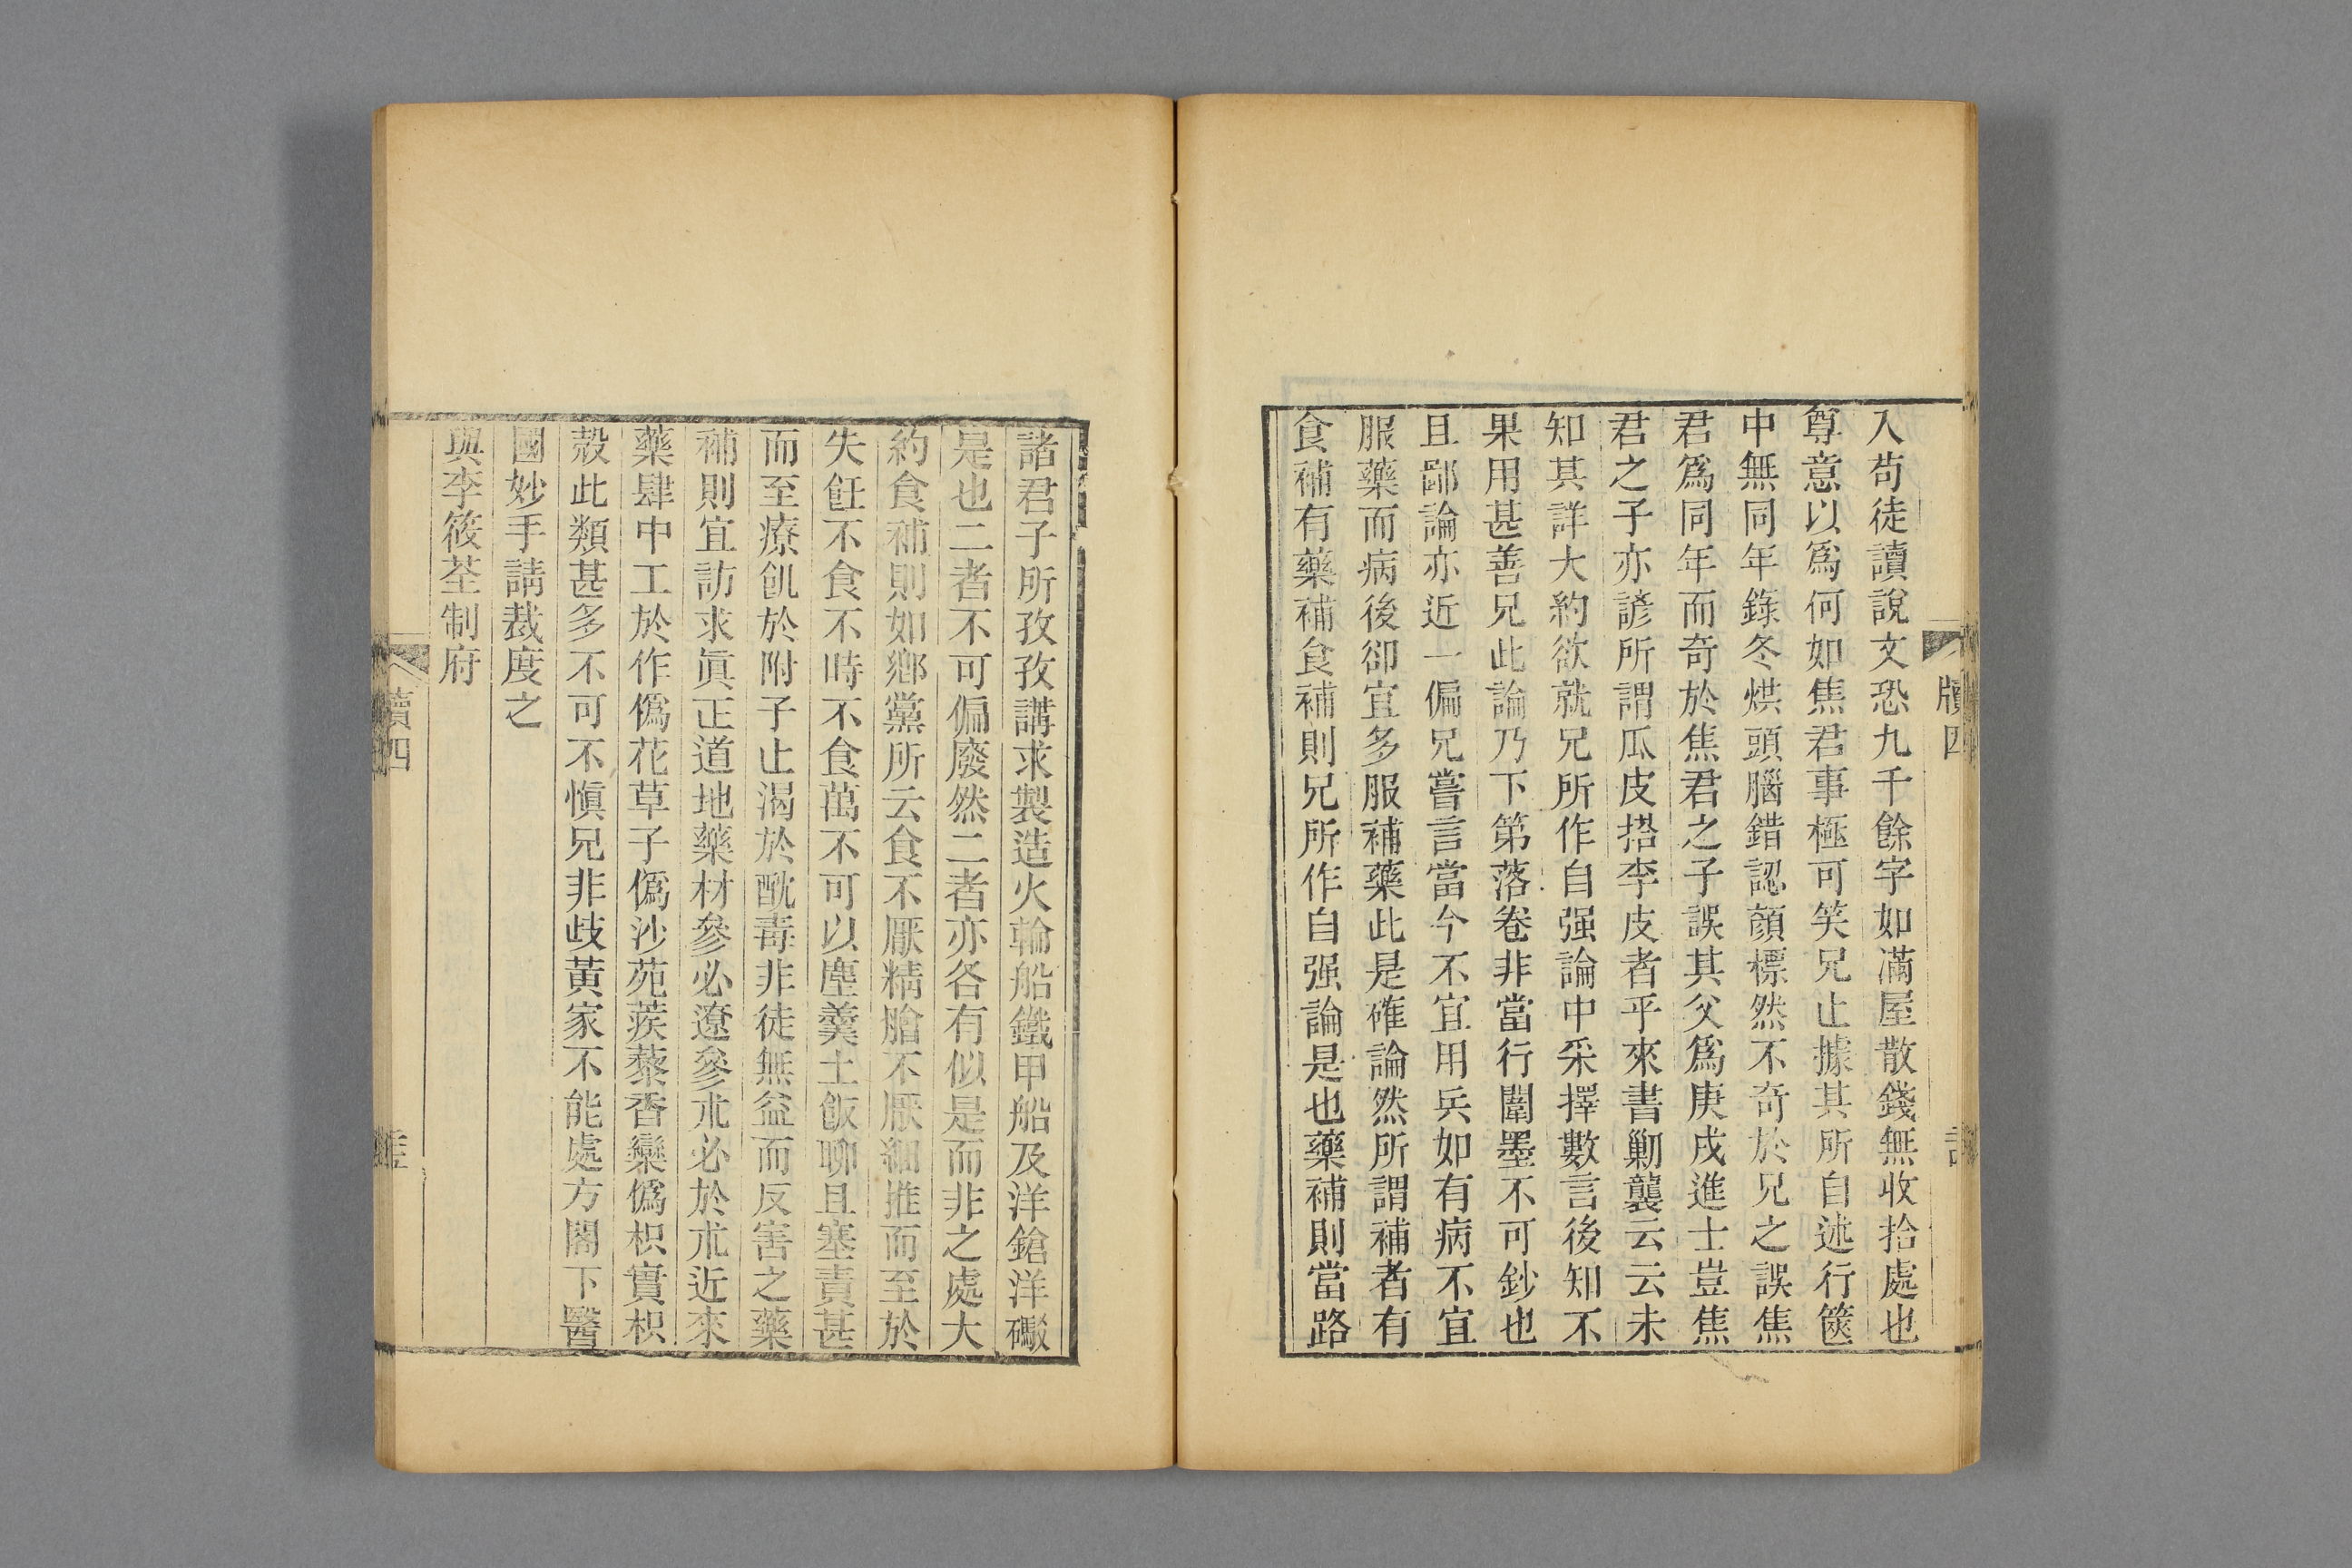 牘四
入苟徒讀說文恐九千餘字如滿屋散錢無收拾處也
尊意以爲何如焦君事極可笑兄止據其所自述行篋
中無同年錄冬烘頭腦錯認顏標然不奇於兄之誤焦
君爲同年而奇於焦君之子誤其父爲庚戌進士豈焦
君之子亦諺所謂瓜皮搭李皮者乎來書勦襲云云未
知其詳大約欲就兄所作自强論中采擇數言後知不
果用甚善兄此論乃下第落卷非當行闈墨不可鈔也
且鄙論亦近一偏兄嘗言當今不宜用兵如有病不宜
服藥而病後卻宜多服補藥此是確論然所謂補者有
食補有藥補食補則兄所作自强論是也藥補則當路
諸君子所孜孜講求製造火輪船鐵甲船及洋鎗洋礮
是也二者不可偏廢然二者亦各有似是而非之處大
約食補則如鄉黨所云食不厭精膾不厭細推而至於
失飪不食不時不食萬不可以塵羹土飯聊且塞責甚
而至療飢於附子止渴於酖毒非徒無益而反害之藥
補則宜訪求眞正道地藥材參必遼參朮必於朮近來
藥肆中工於作僞花草子僞沙苑蒺藜香欒僞枳實枳
殼此類甚多不可不愼兄非歧黃家不能處方閣下醫
國妙手請裁度之
與李筱荃制府
牘四